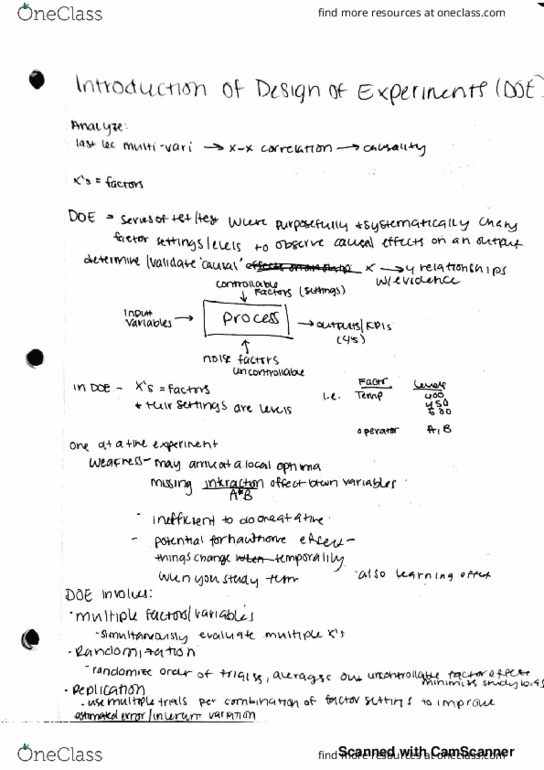 OneClass
find more resources at oneclass.com
Introduction of Design of Experiments (DOE)
Analyze:
last lec multi-vari → x-x correlation → causality
x's = factors
DOE = series of test where purposefully + systematically chang
factor settings/levels to observe causal effects on an output
determine/validate 'causal' x → y relationships
w/evidence
controllable
factors (settings)
input
variables → process → outputs/KPIs
(y's)
noise factors
uncontrollable
in DOE - x's = factors
+ their settings are levels
i.e.
Factor Levels
Temp 400
450
operator A, B
one at a time experiment
weakness - may arrive at a local optima
missing interaction effect btwn variables
A*B
- inefficient to do one at a time
- potential for hawthorne effect -
things change when temporarily
when you study them
*also learning effect
DOE involves:
• multiple factors/variables
- simultaneously evaluate multiple x's
• Randomization
- randomize order of trials, averages out uncontrollable factor effects
minimizes study bias
• Replication
- use multiple trials per combination of factor settings to improve
estimated error/inherent variation
OneClass
find more resources at oneclass.com
Scanned with CamScanner